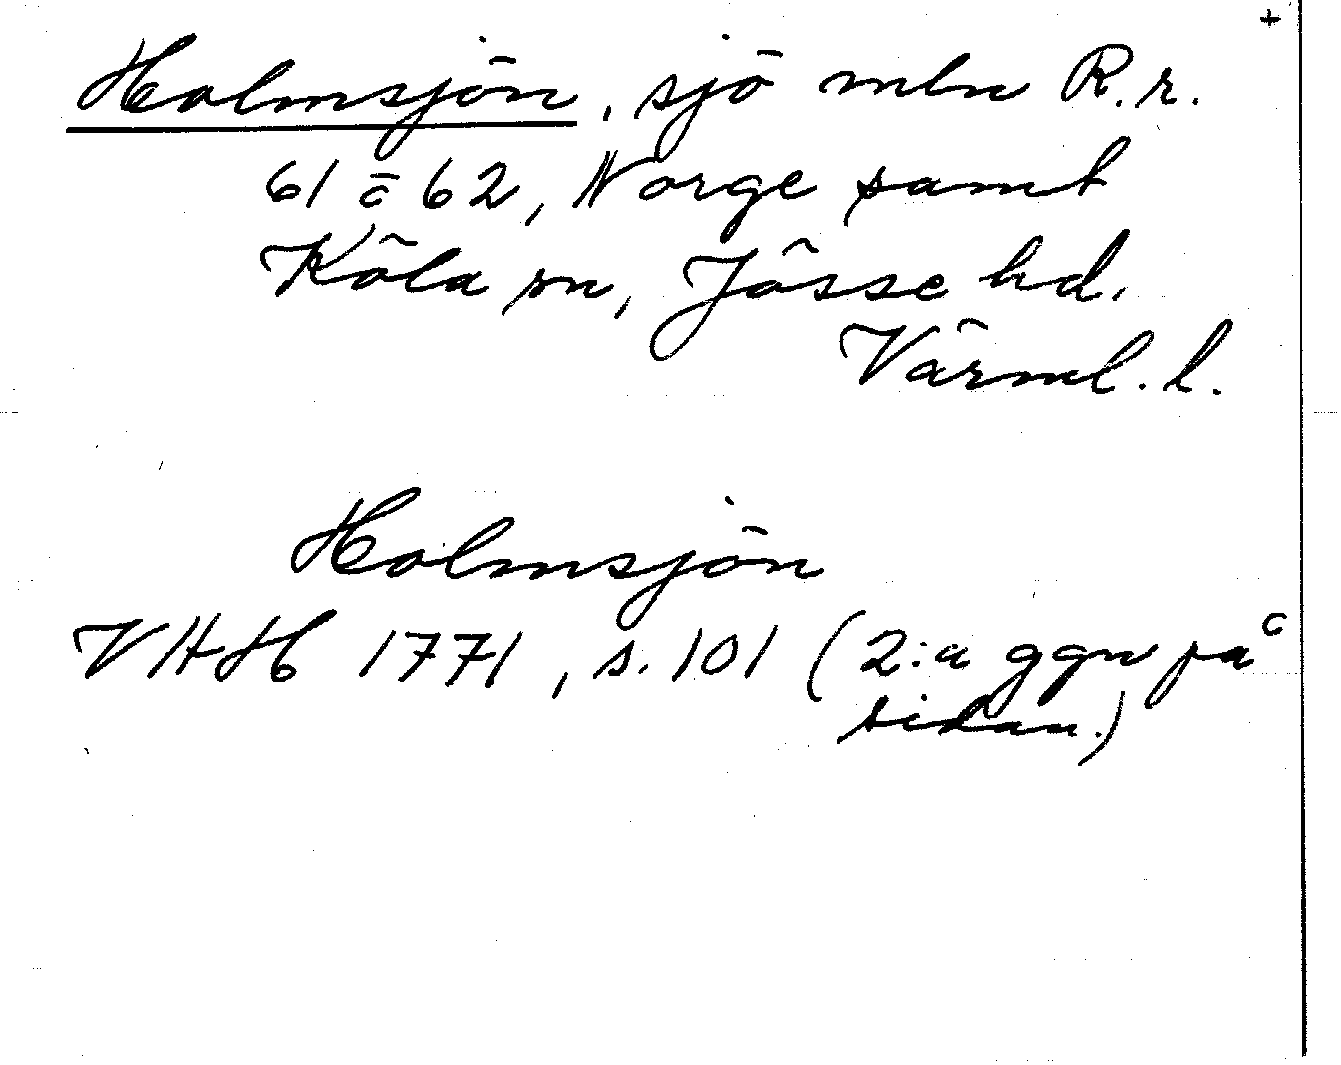 +
Holmsjön, sjö mln R.r.
61 o 62, Norge samt
Köla sn, Jösse hd.
Värml. l.
Holmsjön
VHH 1771, s. 101 (2:a ggn på
sidan.)